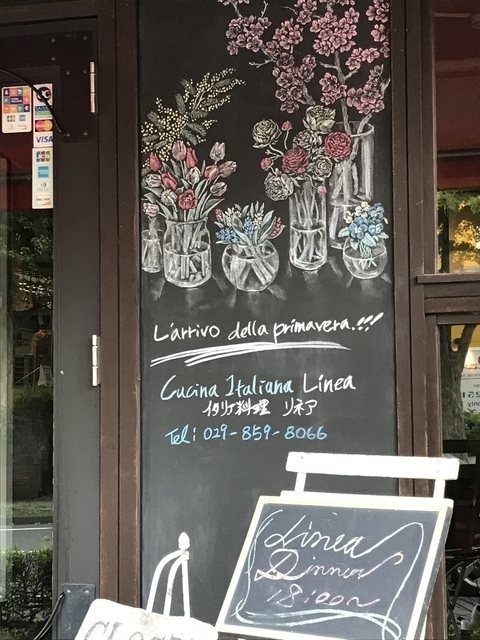 VISA
L'arrivo della primavera.!!!
Cucina Italiana Linea
イタリア料理 リネア
Tel: 029-859-8066
Linea
Dinner
18:00~